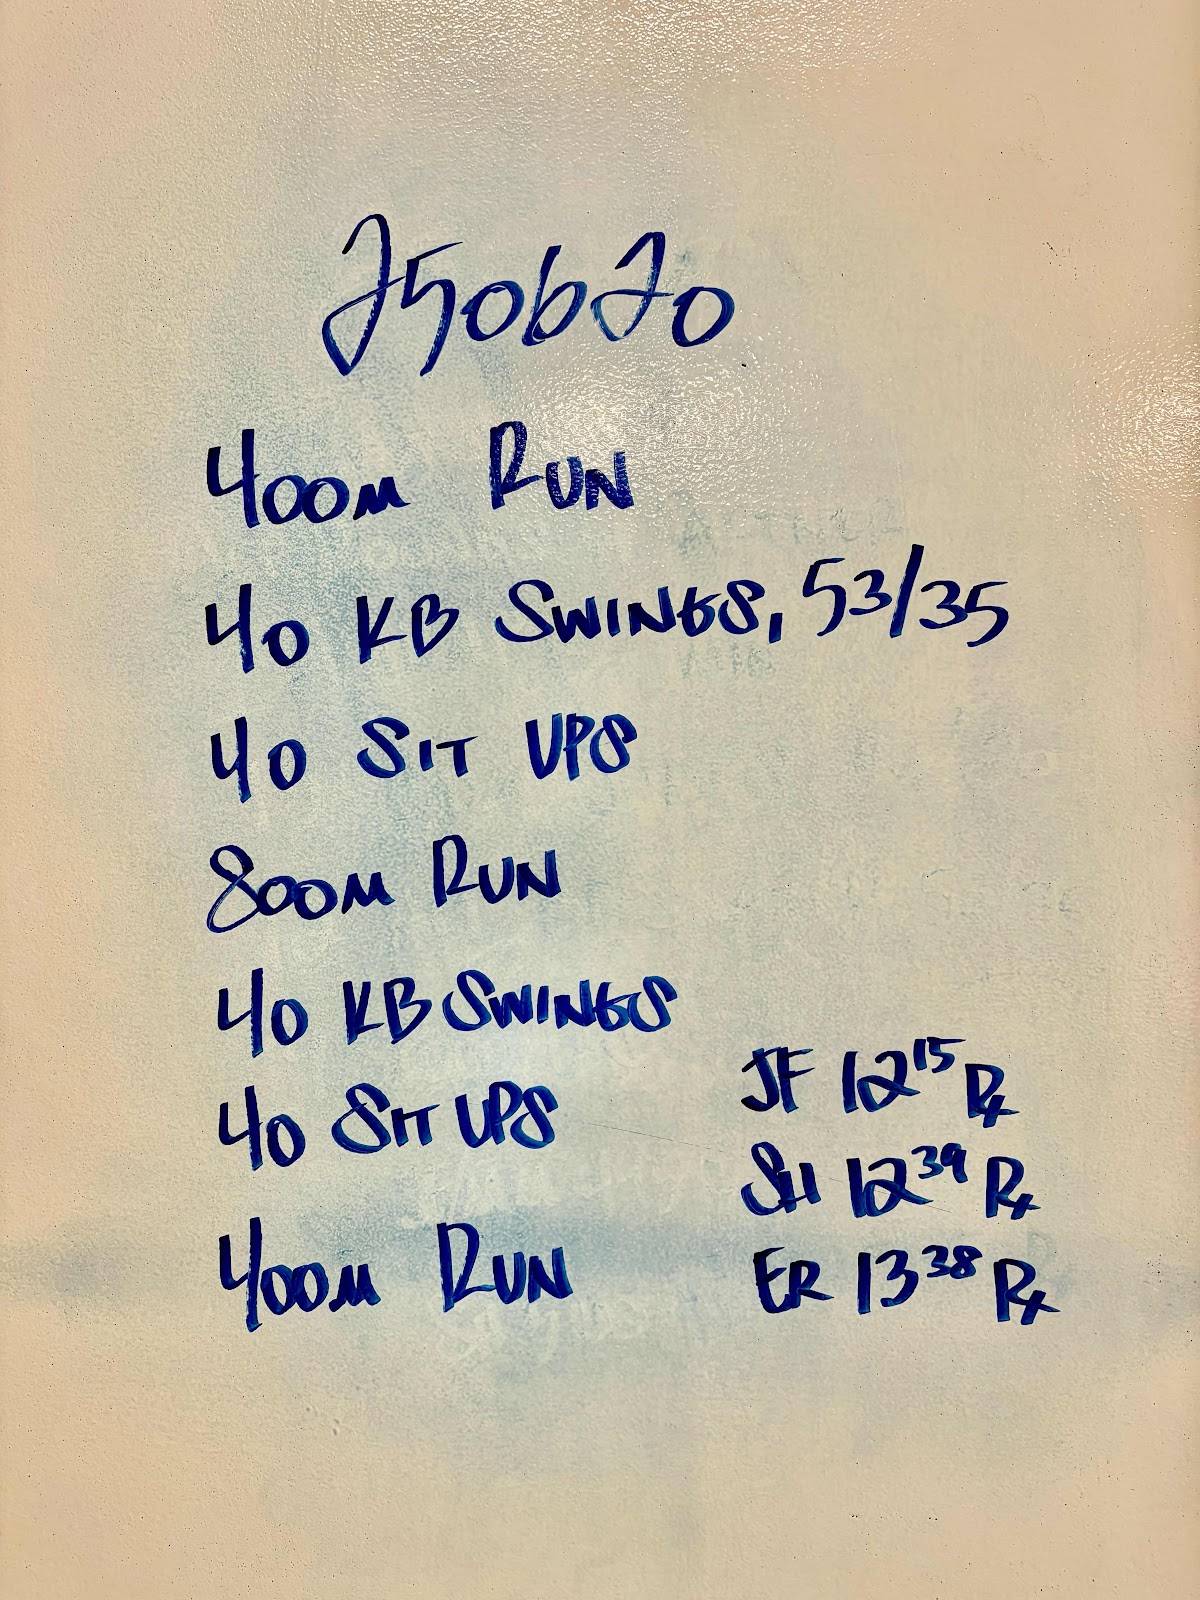 250620
400M RUN
40 KB SWINGS, 53/35
40 SIT UPS
800M RUN
40 KB SWINGS
40 SIT UPS
400M RUN
JF 12 15 Rx
SH 12 39 Rx
ER 13 38 Rx